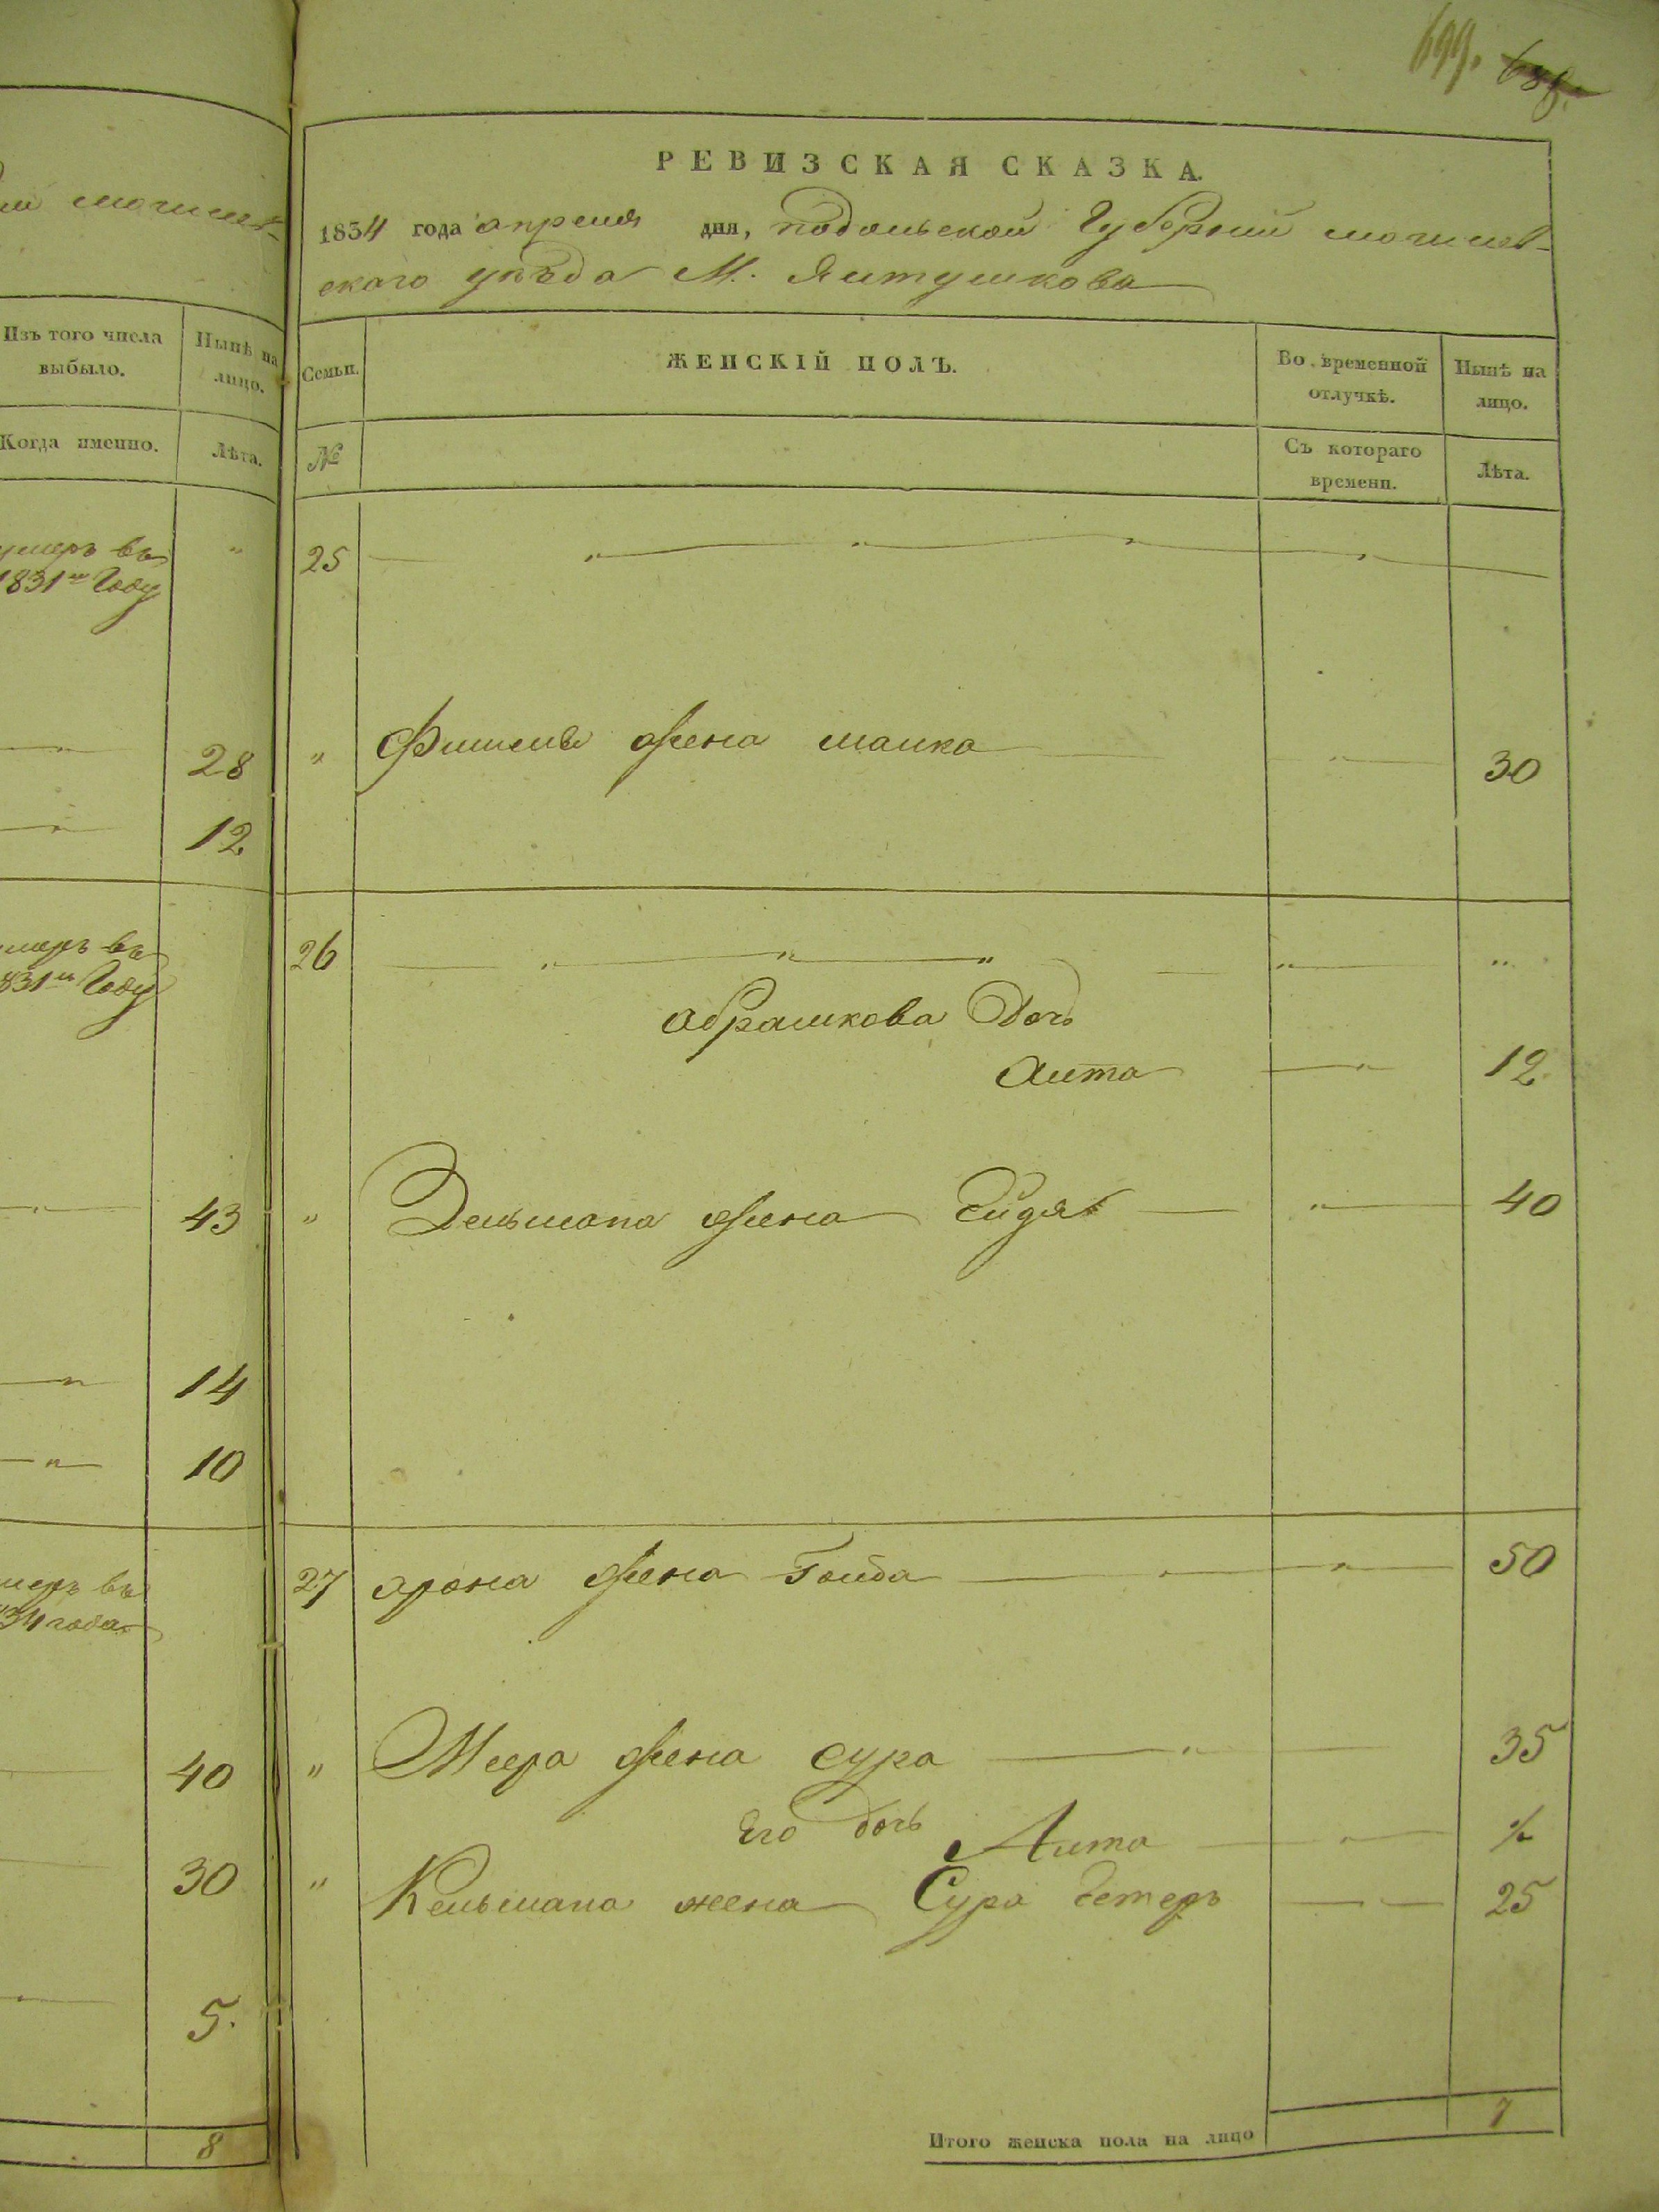 699. 688.
ми могилев-
Изъ того числа выбыло.
Нынѣ на лицо.
Когда именно.
Лѣта.
умеръ въ
1831м Году
28
12
умеръ въ
831м Году
43
14
10
умеръ въ
34 года
40
30
5.
8
РЕВИЗСКАЯ СКАЗКА.
1834 года апреля дня, подольской Губернии могилев-
ского уезда М. Ялтушкова
Семьи.
ЖЕНСКІЙ ПОЛЪ.
Во временной отлучкѣ.
Нынѣ на лицо.
№
Съ котораго времени.
Лѣта.
25
" Фишеля жена малка " 30
26
Абрашкова Дочь
Аита " 12
" Зельмана жена " 40
27 арона жена Гольда " 50
" Меера жена сура " 35
Его дочь Аита " ½
" Кельмана жена Сура Естеръ 25
Итого женска пола на лицо 7